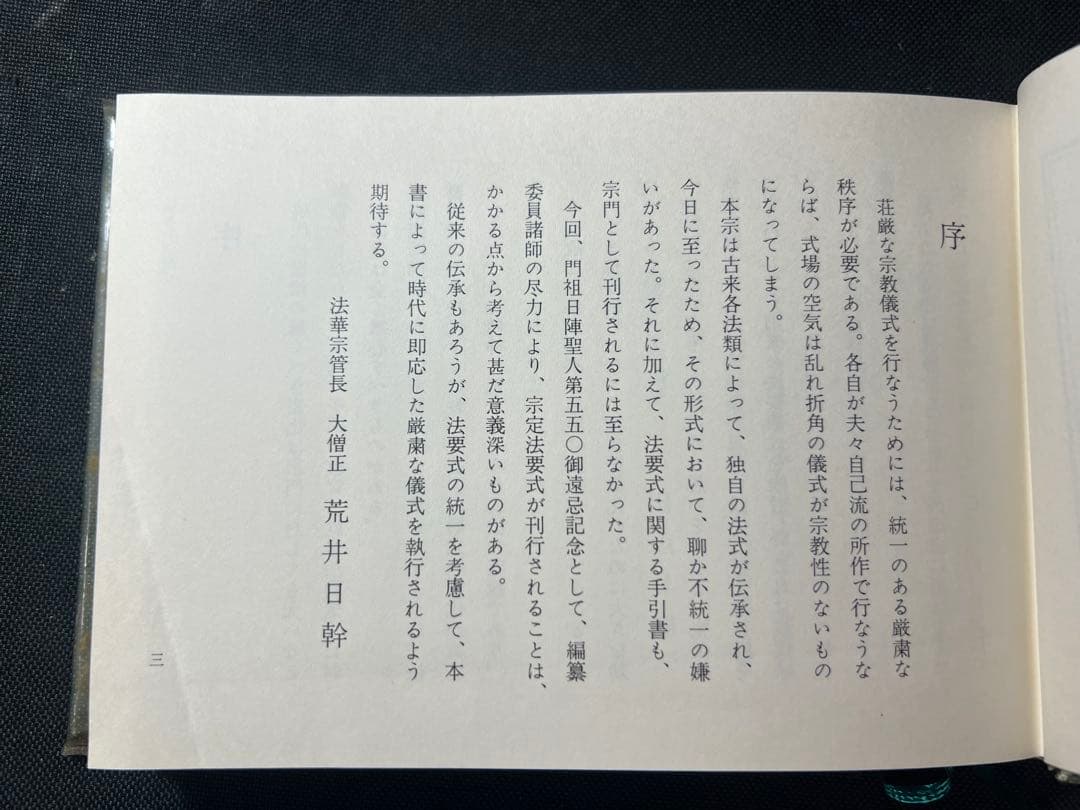 序
荘厳な宗教儀式を行なうためには、統一のある厳粛な
秩序が必要である。各自が夫々自己流の所作で行なうな
らば、式場の空気は乱れ折角の儀式が宗教性のないもの
になってしまう。
本宗は古来各法類によって、独自の法式が伝承され、
今日に至ったため、その形式において、聊か不統一の嫌
いがあった。それに加えて、法要式に関する手引書も、
宗門として刊行されるには至らなかった。
今回、門祖日陣聖人第五五〇御遠忌記念として、編纂
委員諸師の尽力により、宗定法要式が刊行されることは、
かかる点から考えて甚だ意義深いものがある。
従来の伝承もあろうが、法要式の統一を考慮して、本
書によって時代に即応した厳粛な儀式を執行されるよう
期待する。
法華宗管長 大僧正 荒井日幹
三